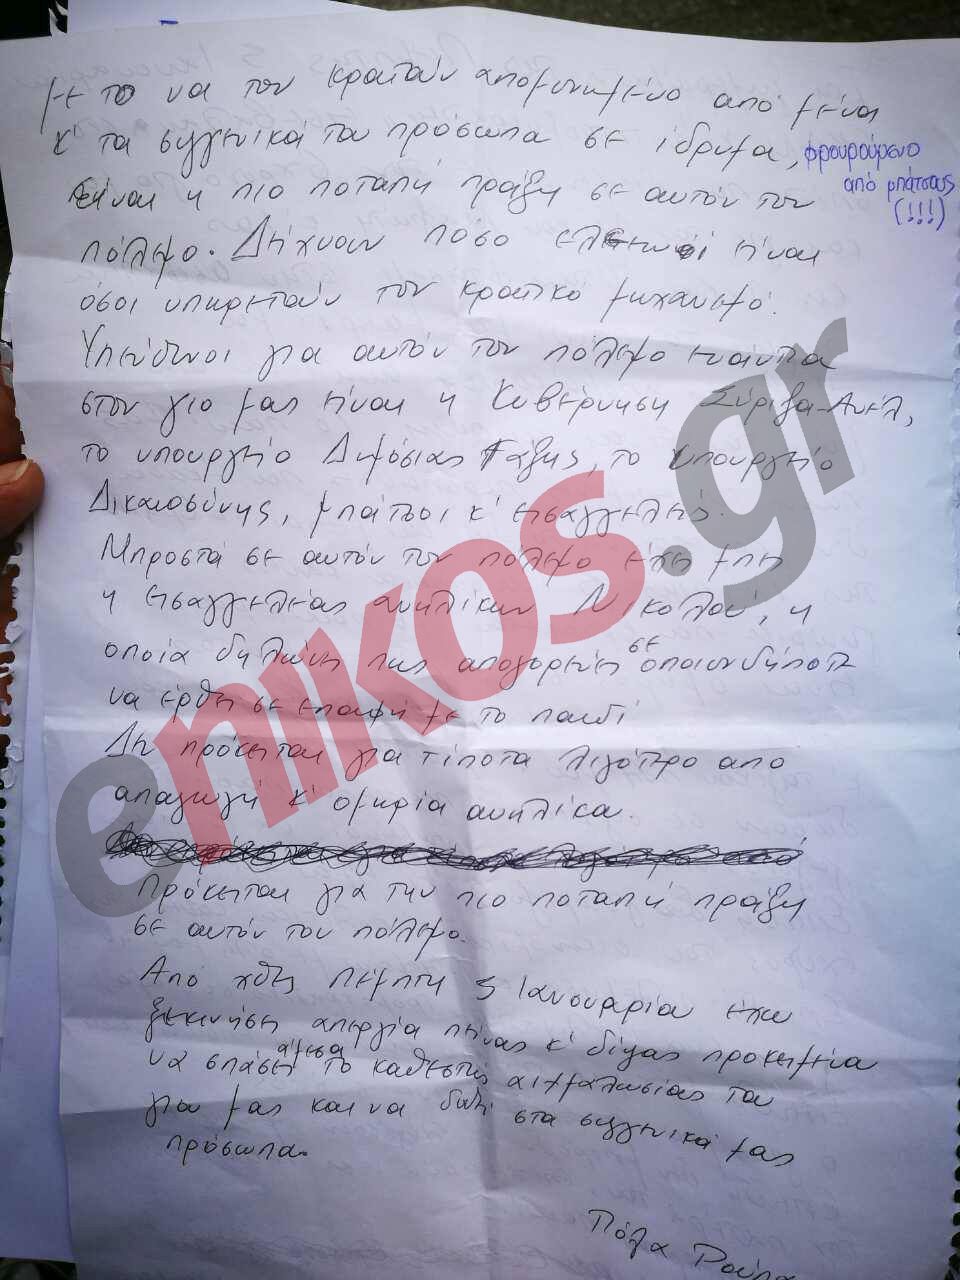 Με το να τον κρατούν απομονωμένο από μένα
κ' τα συγγενικά του πρόσωπα σε ίδρυμα, φρουρούμενο
από μπάτσους
(!!!)
είναι η πιο ποταπή πράξη σε αυτόν τον
πόλεμο. Δείχνουν πόσο ελεεινοί είναι
όσοι υπηρετούν τον κρατικό μηχανισμό.
Υπεύθυνοι για αυτόν τον πόλεμο ενάντια
στον γιο μας είναι η Κυβέρνηση Σύριζα-Ανέλ,
το υπουργείο Δημόσιας Τάξης, το υπουργείο
Δικαιοσύνης, μπάτσοι κ' εισαγγελείς.
Μπροστά σε αυτόν τον πόλεμο έχει μπει
η εισαγγελέας ανηλίκων Νικολού, η
οποία δηλώνει πως απαγορεύει σε οποιονδήποτε
να έρθει σε επαφή με το παιδί
Δεν πρόκειται για τίποτα λιγότερο από
απαγωγή κ' ομηρία ανηλίκου.
Πρόκειται για την πιο ποταπή πράξη
σε αυτόν τον πόλεμο.
Από χθες Πέμπτη 5 Ιανουαρίου έχω
ξεκινήσει απεργία πείνας κ' δίψας προκειμένου
να σπάσει άμεσα το καθεστώς αιχμαλωσίας του
γιου μας και να δοθεί στα συγγενικά μας
πρόσωπα.
Πόλα Ρούπα
enikos.gr